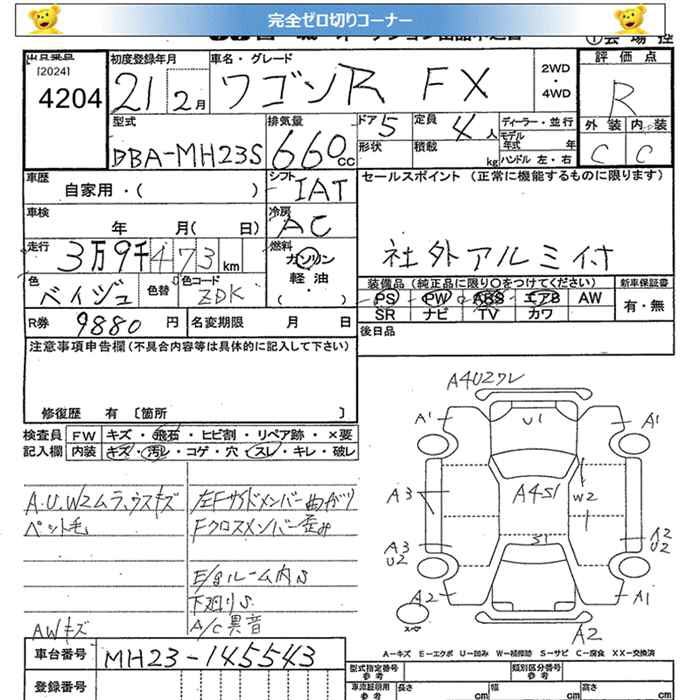 完全ゼロ切りコーナー
[2024]
4204
初度登録年月
21 2月
車名・グレード
ワゴンR FX
2WD
・
4WD
評価点
R
外装 内装
C C
型式
DBA-MH23S
排気量
660cc
ドア 5
形状
定員 4人
積載 kg
ディーラー・並行
モデル
年式 年
ハンドル 左・右
車歴
自家用・( )
シフト
IAT
セールスポイント (正常に機能するものに限ります)
社外アルミ付
車検
年 月( 日)
冷房
AC
走行
3万9千473km
燃料
ガソリン
軽油
・( )
色
ベイジュ
色替
色コード
ZDK
装備品 (純正品に限り○をつけてください)
PS PW ABS エアB AW
SR ナビ TV カワ
新車保証書
有・無
R券 9880円
名変期限 月 日
後日品
注意事項申告欄(不具合内容等は具体的に記入して下さい)
修復歴 有 〔箇所 〕
検査員
記入欄
FW キズ・飛石・ヒビ割・リペア跡・×要
内装 キズ・汚レ・コゲ・穴・スレ・キレ・破レ
A.U.W2ムラ、ウスキズ
ペット毛
AWキズ
左Fサイドメンバー曲がり
Fクロスメンバー歪み
E/gルーム内S
下廻りS
A/C異音
A4U2ワレ
A1
U1
A1
A3
A4S1
W2
A3
U2
S1
A2
U2
A2
A1
A2
A-キズ E-エクボ U-凹み W-補修跡 S-サビ C-腐食 XX-交換済
車台番号
MH23-145543
登録番号
型式指定番号
参考
類別区分番号
参考
車庫証明用
参考
長さ cm
幅 cm
高さ cm